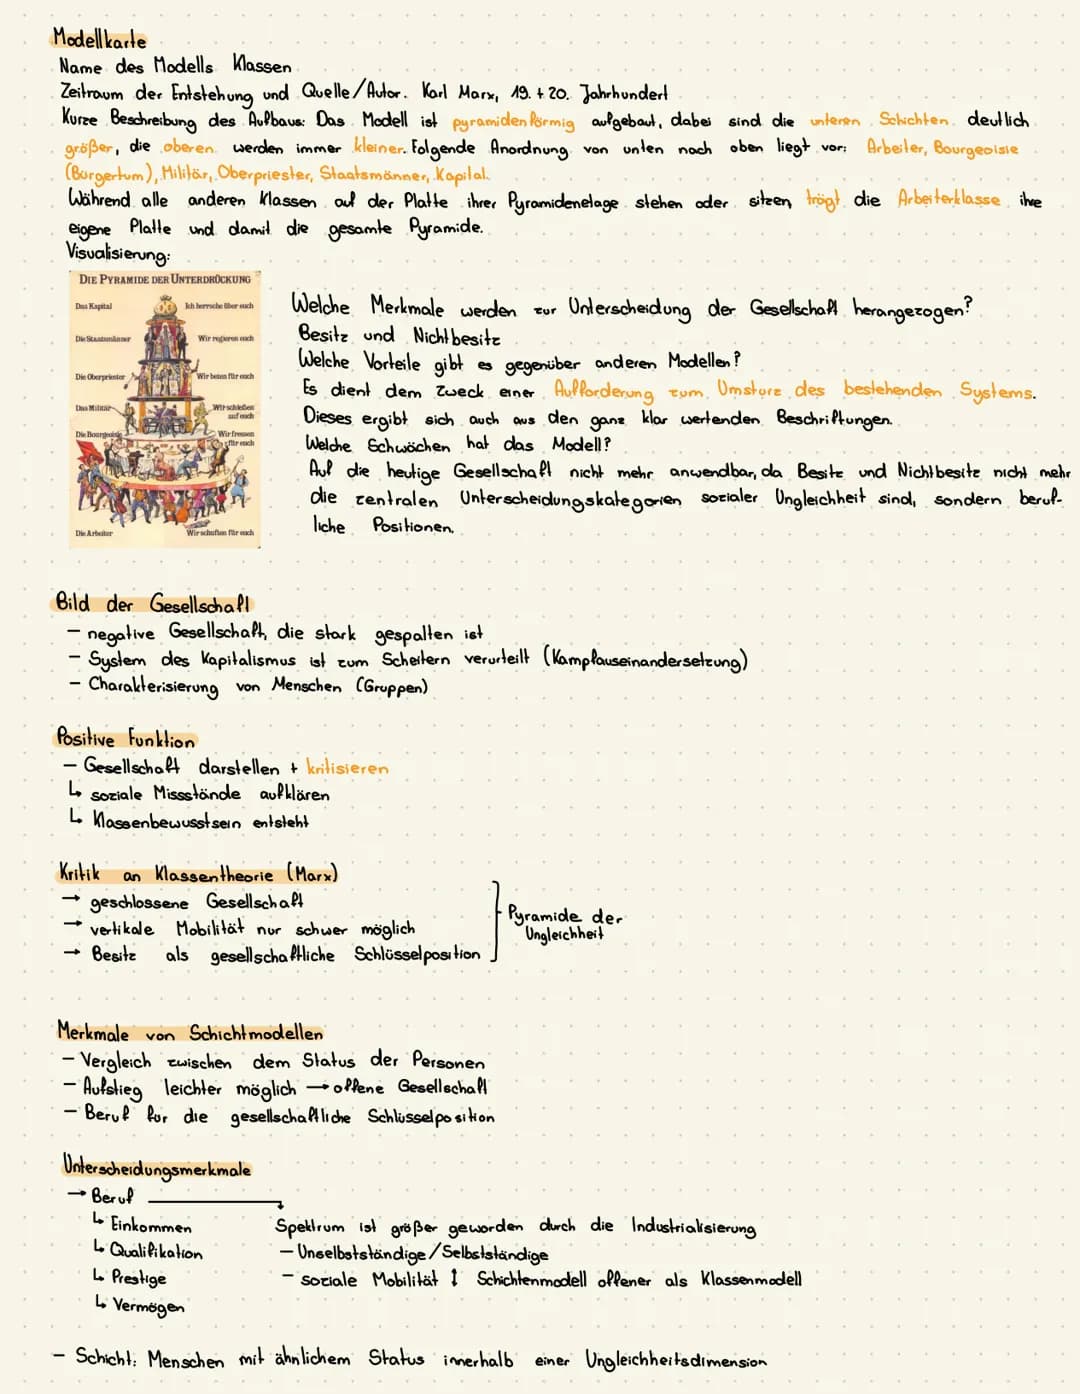 Modellkarte
Name des Modells: Klassen
Zeitraum der Entstehung und Quelle/Autor: Karl Marx, 19. + 20. Jahrhundert
Kurze Beschreibung des Aufbaus: Das Modell ist pyramidenförmig aufgebaut, dabei sind die unteren Schichten deutlich
größer, die oberen werden immer kleiner. Folgende Anordnung von unten nach oben liegt vor: Arbeiter, Bourgeoisie
(Bürgertum), Militär, Oberpriester, Staatsmänner, Kapital.
Während alle anderen Klassen auf der Platte ihrer Pyramidenetage stehen oder sitzen, trägt die Arbeiterklasse ihre
eigene Platte und damit die gesamte Pyramide.
Visualisierung:
DIE PYRAMIDE DER UNTERDRÜCKUNG
Das Kapital Ich herrsche über euch
Die Staatsmänner Wir regieren euch
Die Oberpriester Wir beten für euch
Das Militär Wir schießen
auf euch
Die Bourgeoisie Wir fressen
für euch
Die Arbeiter Wir schuften für euch
Welche Merkmale werden zur Unterscheidung der Gesellschaft herangezogen?
Besitz und Nichtbesitz
Welche Vorteile gibt es gegenüber anderen Modellen?
Es dient dem Zweck einer Aufforderung zum Umsturz des bestehenden Systems.
Dieses ergibt sich auch aus den ganz klar wertenden Beschriftungen.
Welche Schwächen hat das Modell?
Auf die heutige Gesellschaft nicht mehr anwendbar, da Besitz und Nichtbesitz nicht mehr
die zentralen Unterscheidungskategorien sozialer Ungleichheit sind, sondern beruf-
liche Positionen.
Bild der Gesellschaft
- negative Gesellschaft, die stark gespalten ist
- System des Kapitalismus ist zum Scheitern verurteilt (Kampfauseinandersetzung)
- Charakterisierung von Menschen (Gruppen)
Positive Funktion
- Gesellschaft darstellen + kritisieren
↳ soziale Missstände aufklären
↳ Klassenbewusstsein entsteht
Kritik an Klassentheorie (Marx)
→ geschlossene Gesellschaft
→ vertikale Mobilität nur schwer möglich
→ Besitz als gesellschaftliche Schlüsselposition
Pyramide der
Ungleichheit
Merkmale von Schichtmodellen
- Vergleich zwischen dem Status der Personen
- Aufstieg leichter möglich → offene Gesellschaft
- Beruf für die gesellschaftliche Schlüsselposition
Unterscheidungsmerkmale
→ Beruf
↳ Einkommen
↳ Qualifikation
↳ Prestige
↳ Vermögen
Spektrum ist größer geworden durch die Industrialisierung
- Unselbstständige/Selbstständige
- soziale Mobilität ↕ Schichtenmodell offener als Klassenmodell
- Schicht: Menschen mit ähnlichem Status innerhalb einer Ungleichheitsdimension